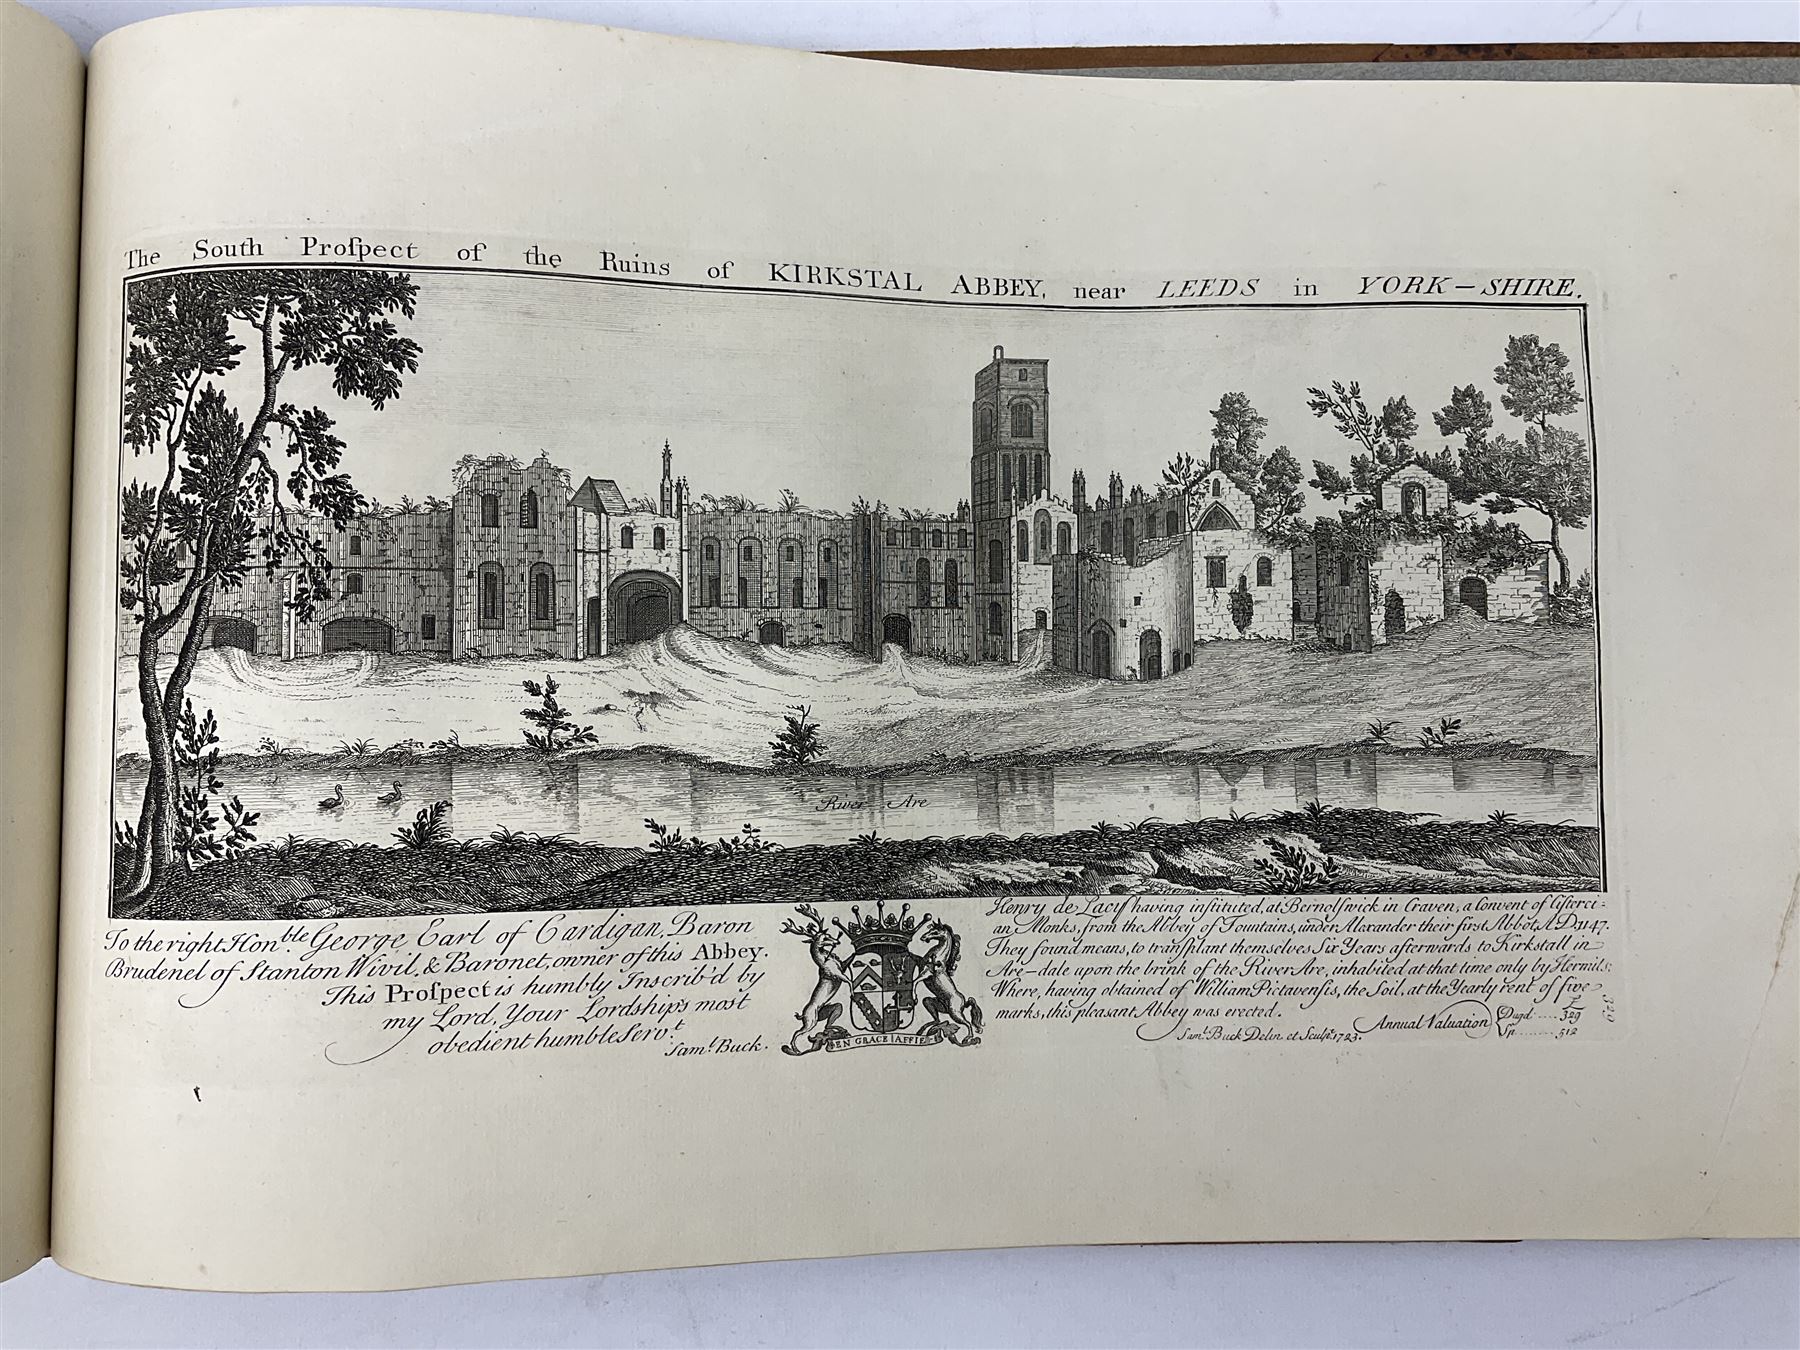 The South Proſpect of the Ruins of KIRKSTAL ABBEY, near LEEDS in YORK-SHIRE.
River Are
To the right Hon.ble George Earl of Cardigan, Baron
Brudenel of Stanton Wivil, & Baronet, owner of this Abbey.
This Proſpect is humbly Inscrib'd by
my Lord, Your Lordships most
obedient humble Serv.t
Sam.l Buck.
EN GRACE AFFIE
Henry de Lacy having inſtituted, at Bernolſwick in Craven, a Convent of Ciſterci-
an Monks, from the Abbey of Fountains, under Alexander their first Abbot A.D. 1147.
They found means, to tranſplant themselves Six Years afterwards to Kirkstall in
Are-dale upon the brink of the River Are, inhabited at that time only by Hermits;
Where, having obtained of William Pictavenſis, the Soil, at the Yearly rent of five
marks, this pleasant Abbey was erected.
Annual Valuation
Dugd ..... 329
Sp ......... 512
Sam.l Buck Delin et Sculpt. 1723.